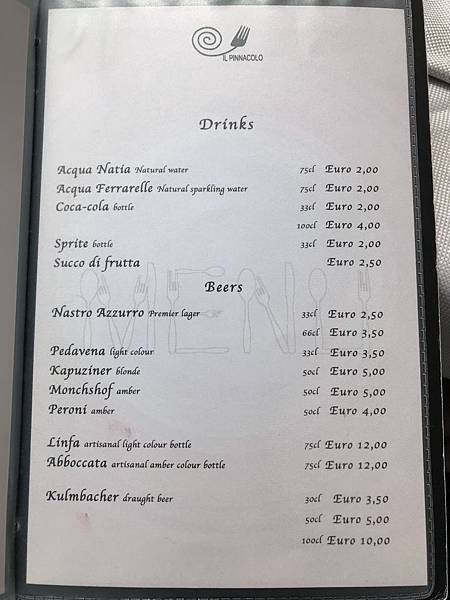 IL PINNACOLO
Drinks
Acqua Natia Natural water 75cl Euro 2,00
Acqua Ferrarelle Natural sparkling water 75cl Euro 2,00
Coca-cola bottle 33cl Euro 2,00
100cl Euro 4,00
Sprite bottle 33cl Euro 2,00
Succo di frutta Euro 2,50
MENU
Beers
Nastro Azzurro Premier lager 33cl Euro 2,50
66cl Euro 3,50
Pedavena light colour 33cl Euro 3,50
Kapuziner blonde 50cl Euro 5,00
Monchshof amber 50cl Euro 5,00
Peroni amber 50cl Euro 4,00
Linfa artisanal light colour bottle 75cl Euro 12,00
Abboccata artisanal amber colour bottle 75cl Euro 12,00
Kulmbacher draught beer 30cl Euro 3,50
50cl Euro 5,00
100cl Euro 10,00